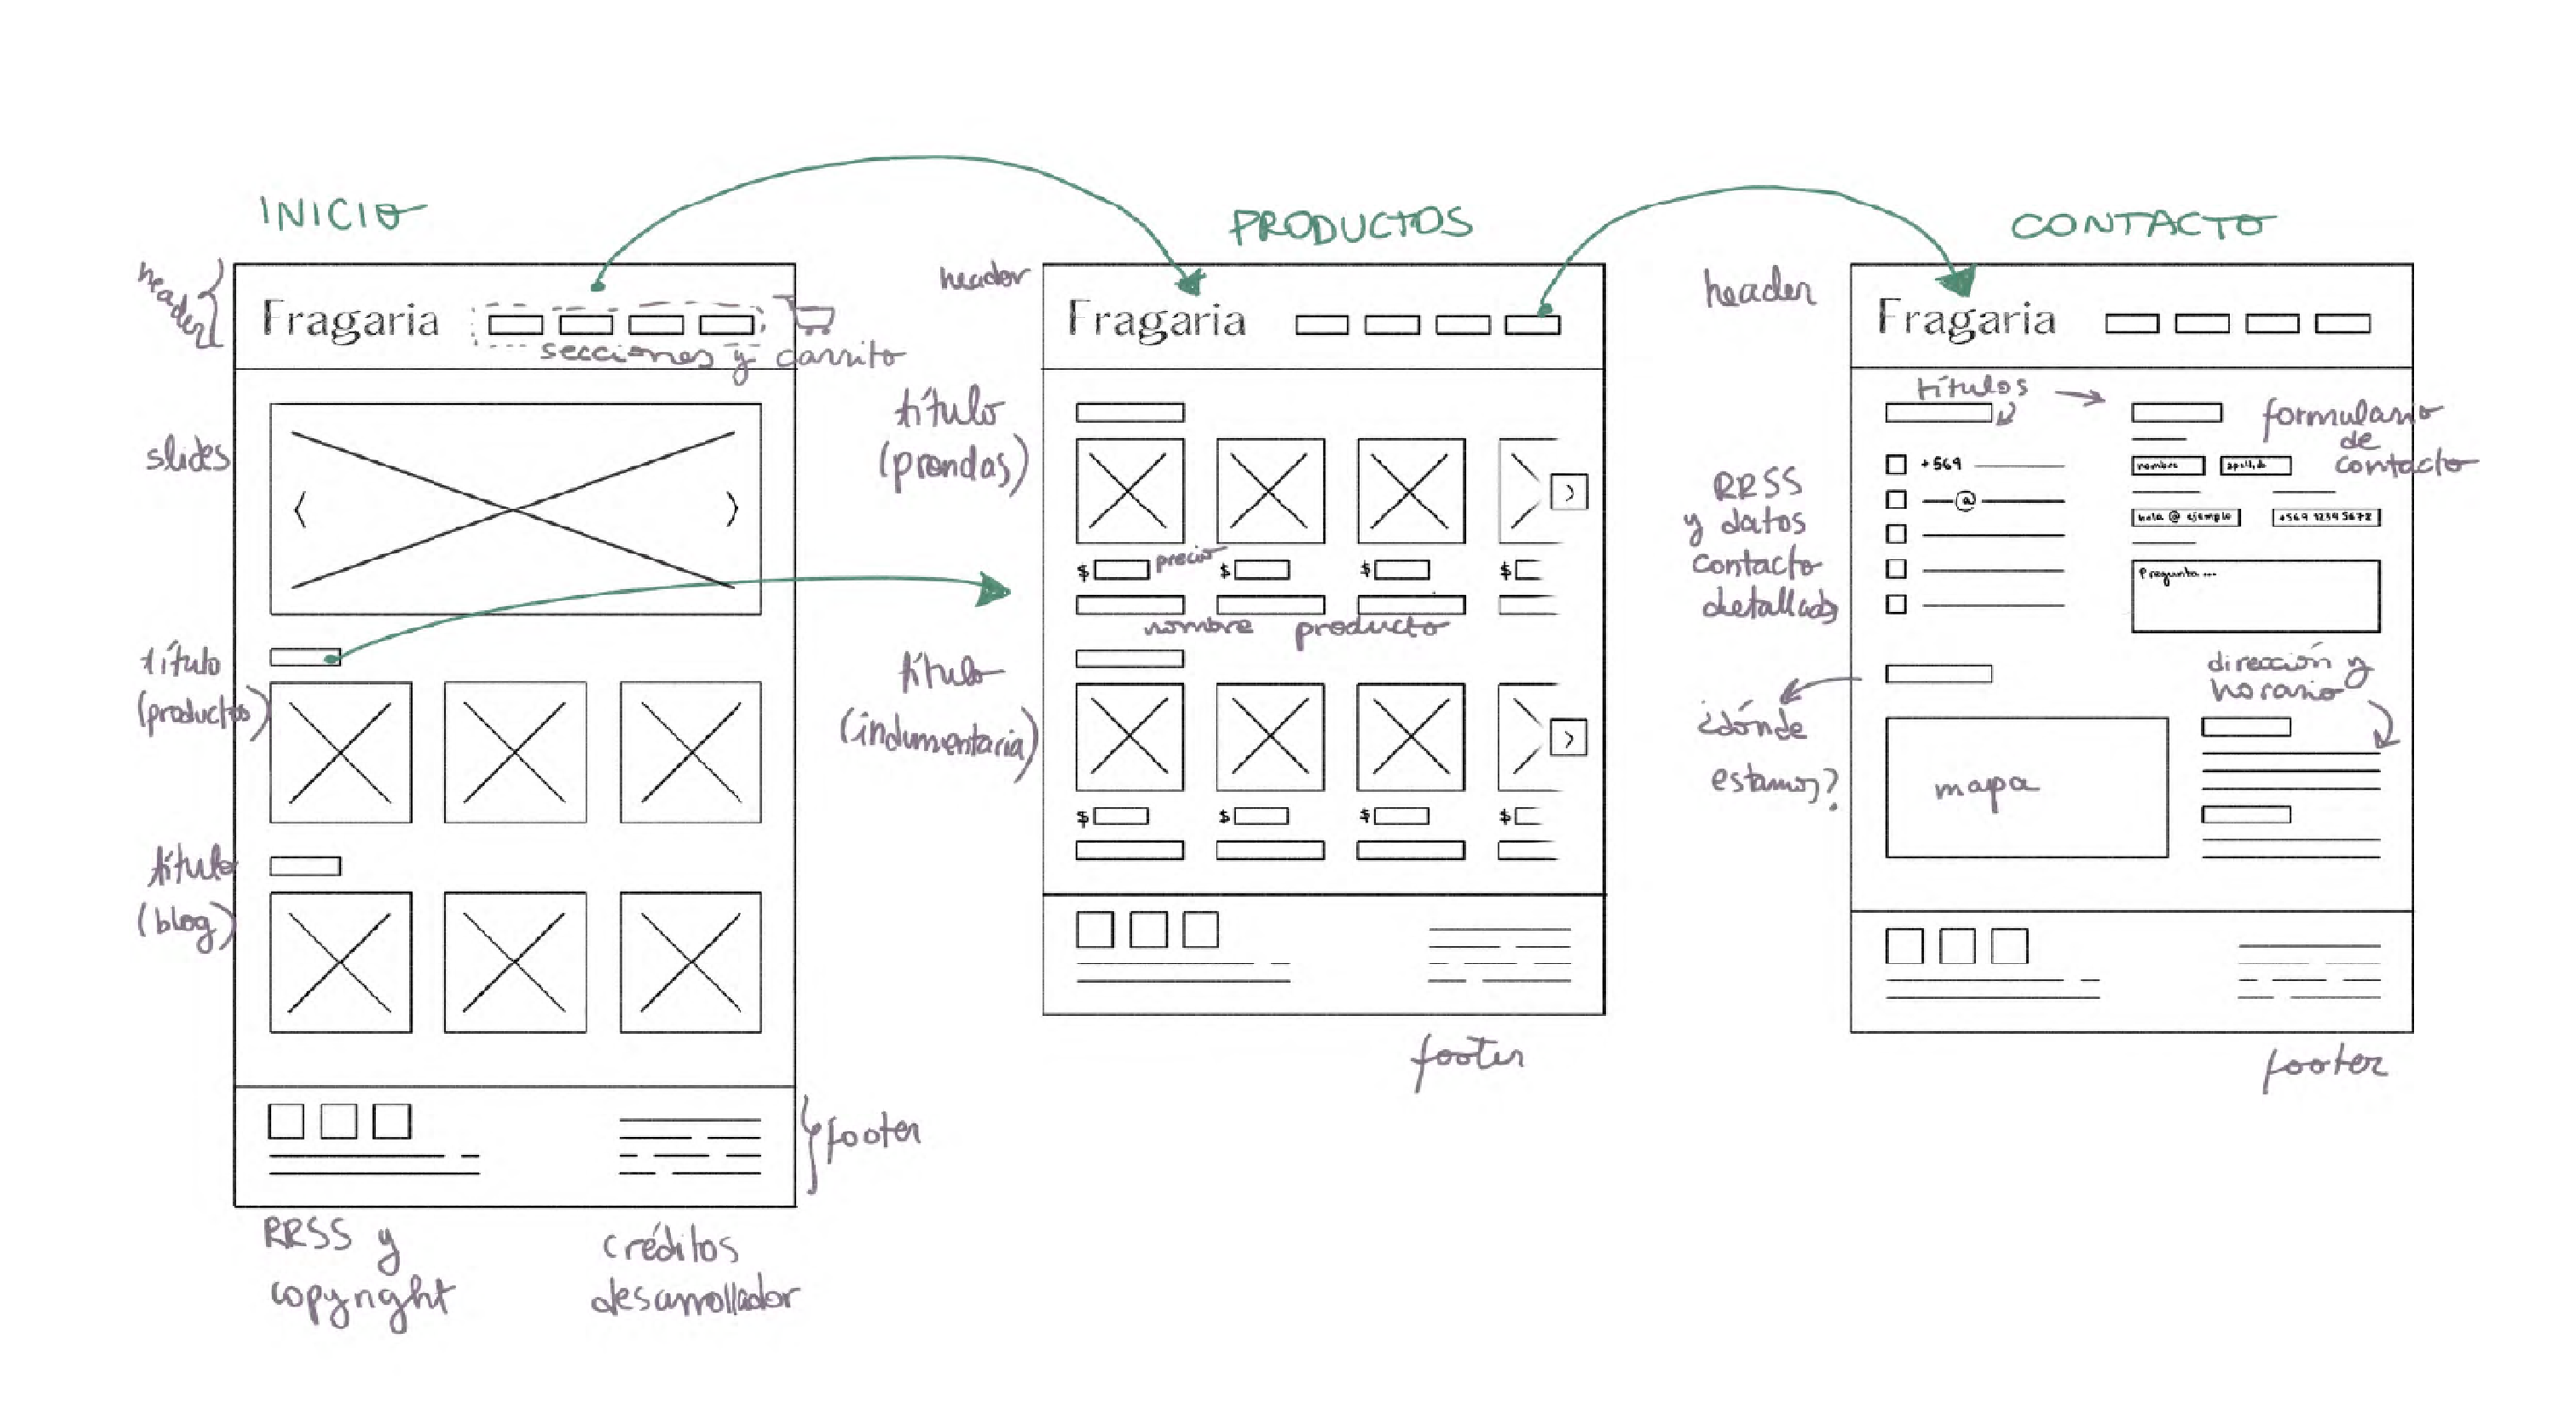 INICIO
header
Fragaria
secciones y carrito
slides
título
(productos)
título
(blog)
footer
RRSS y
copyright
créditos
desarrollador
PRODUCTOS
header
Fragaria
título
(prendas)
$ precio $ $ $
nombre producto
título
(indumentaria)
$ $ $ $
footer
CONTACTO
header
Fragaria
títulos
formulario
de
contacto
RRSS
y datos
contacto
detallados
+569
@
nombre apellido
hola @ ejemplo +569 1234 5678
Pregunta...
¿dónde
estamos?
mapa
dirección y
horario
footer